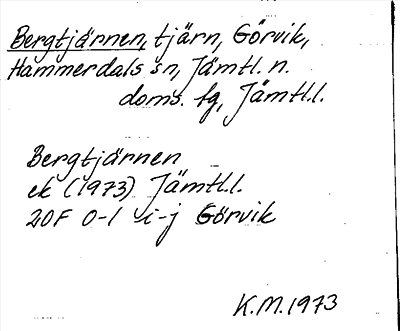 Bergtjärnen, tjärn, Görvik,
Hammerdals sn, Jämtl. n.
doms. fg, Jämtl.l.
Bergtjärnen
ek (1973) Jämtl.l.
20F 0-1 i-j Görvik
K.M. 1973